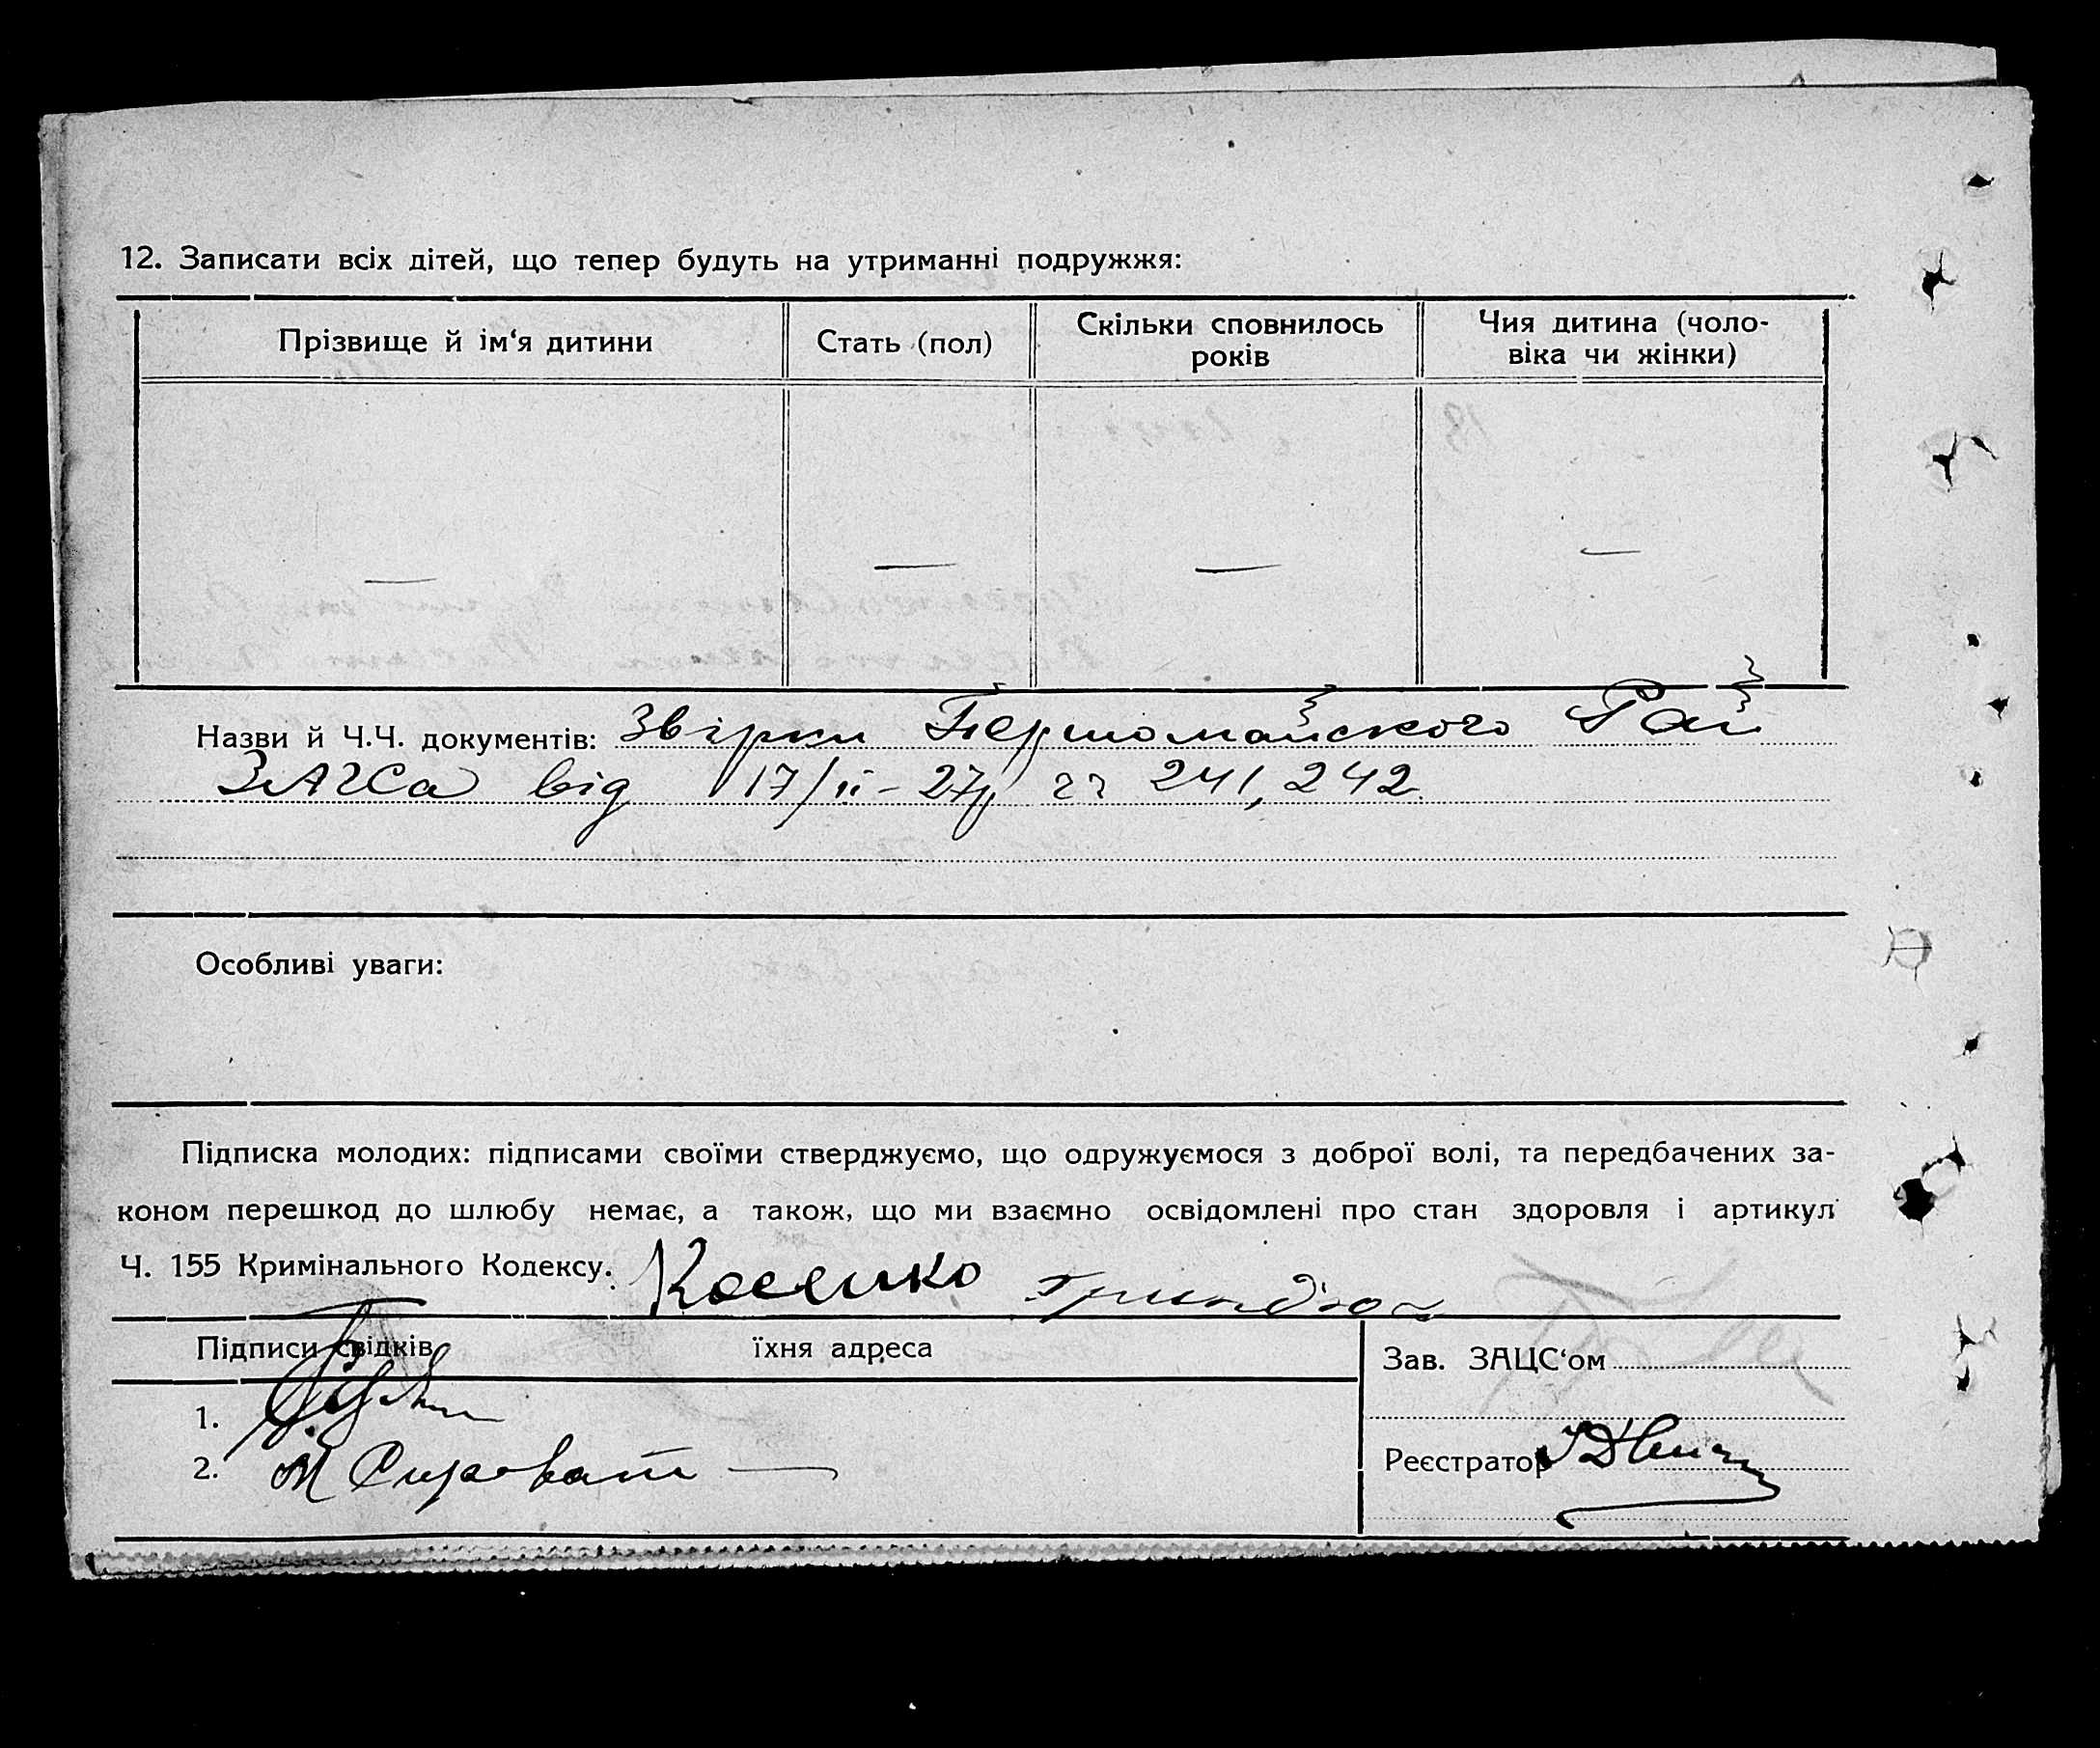 12. Записати всіх дітей, що тепер будуть на утриманні подружжя:
Прізвище й ім‘я дитини
Стать (пол)
Скільки сповнилось
років
Чия дитина (чоло-
віка чи жінки)
— — — —
Назви й Ч.Ч. документів: Звірки Першомайського Рай
ЗАГСа від 17/II-27р чч 241, 242.
Особливі уваги:
Підписка молодих: підписами своїми стверджуємо, що одружуємося з доброї волі, та передбачених за-
коном перешкод до шлюбу немає, а також, що ми взаємно освідомлені про стан здоровля і артикул
Ч. 155 Кримінального Кодексу. Косенко
Підписи свідків
їхня адреса
Зав. ЗАЦС‘ом
1.
2. М
Реєстратор